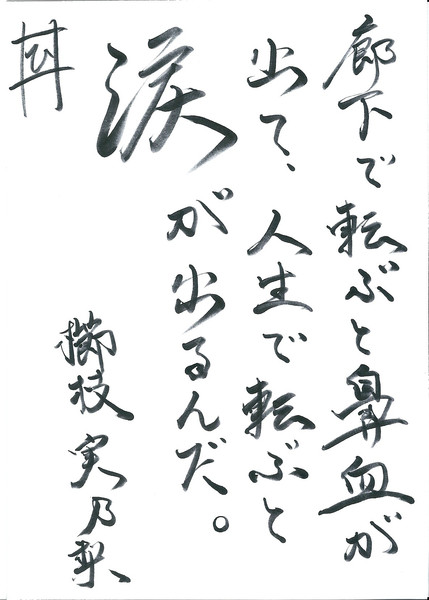 廊下で転ぶと鼻血が
出て、人生で転ぶと
涙が出るんだ。
櫛枝 実乃梨